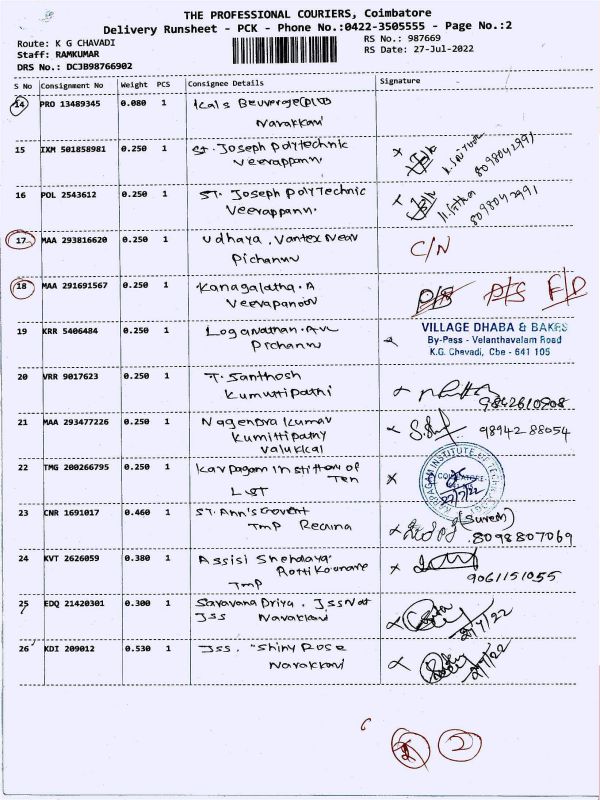 THE PROFESSIONAL COURIERS, Coimbatore
Delivery Runsheet - PCK - Phone No.:0422-3505555 - Page No.:2
Route: K G CHAVADI
RS No.: 987669
Staff: RAMKUMAR
RS Date: 27-Jul-2022
DRS No.: DCJB98766902
S No Consignment No Weight PCS Consignee Details Signature
14 PRO 13489345 0.080 1
Navakkavi
15 IXM 501858981 0.250 1 St. Joseph Polytechnic
Veerappann 8098042991
16 POL 2543612 0.250 1 ST. Joseph PolyTechnic
Veerappann. 8098042991
17 MAA 293816620 0.250 1 Udhaya. Vantex Near C/N
Pichannu
18 MAA 291691567 0.250 1 Kanagalatha. A D/S D/S F/D
Veerapanoor
19 KRR 5406484 0.250 1 Loganathan. VILLAGE DHABA & BAKES
Pichannu By-Pass - Velanthavalam Road
K.G. Chavadi, Cbe - 641 105
20 VRR 9017623 0.250 1 T. Santhosh
Kumuttipathi 9842610908
21 MAA 293477226 0.250 1 Nagendra Kumar
Kumittipathy 98942 88054
Valukkal
22 TMG 200266795 0.250 1 Karpagam Institution of
Ten
COIMBATORE
27/7/22
23 CNR 1691017 0.460 1 ST. Ann's Convent (Suresh)
TMP Regina 8098807069
24 KVT 2626059 0.380 1 Assisi Snehalaya.
TMP 9061151055
25 EDQ 21420301 0.300 1 Saravana Priya.
JSS Navakkavi 27/7/22
26 KDI 209012 0.530 1 JSS. "Shiny Rose
Navakkavi 27/7/22
2